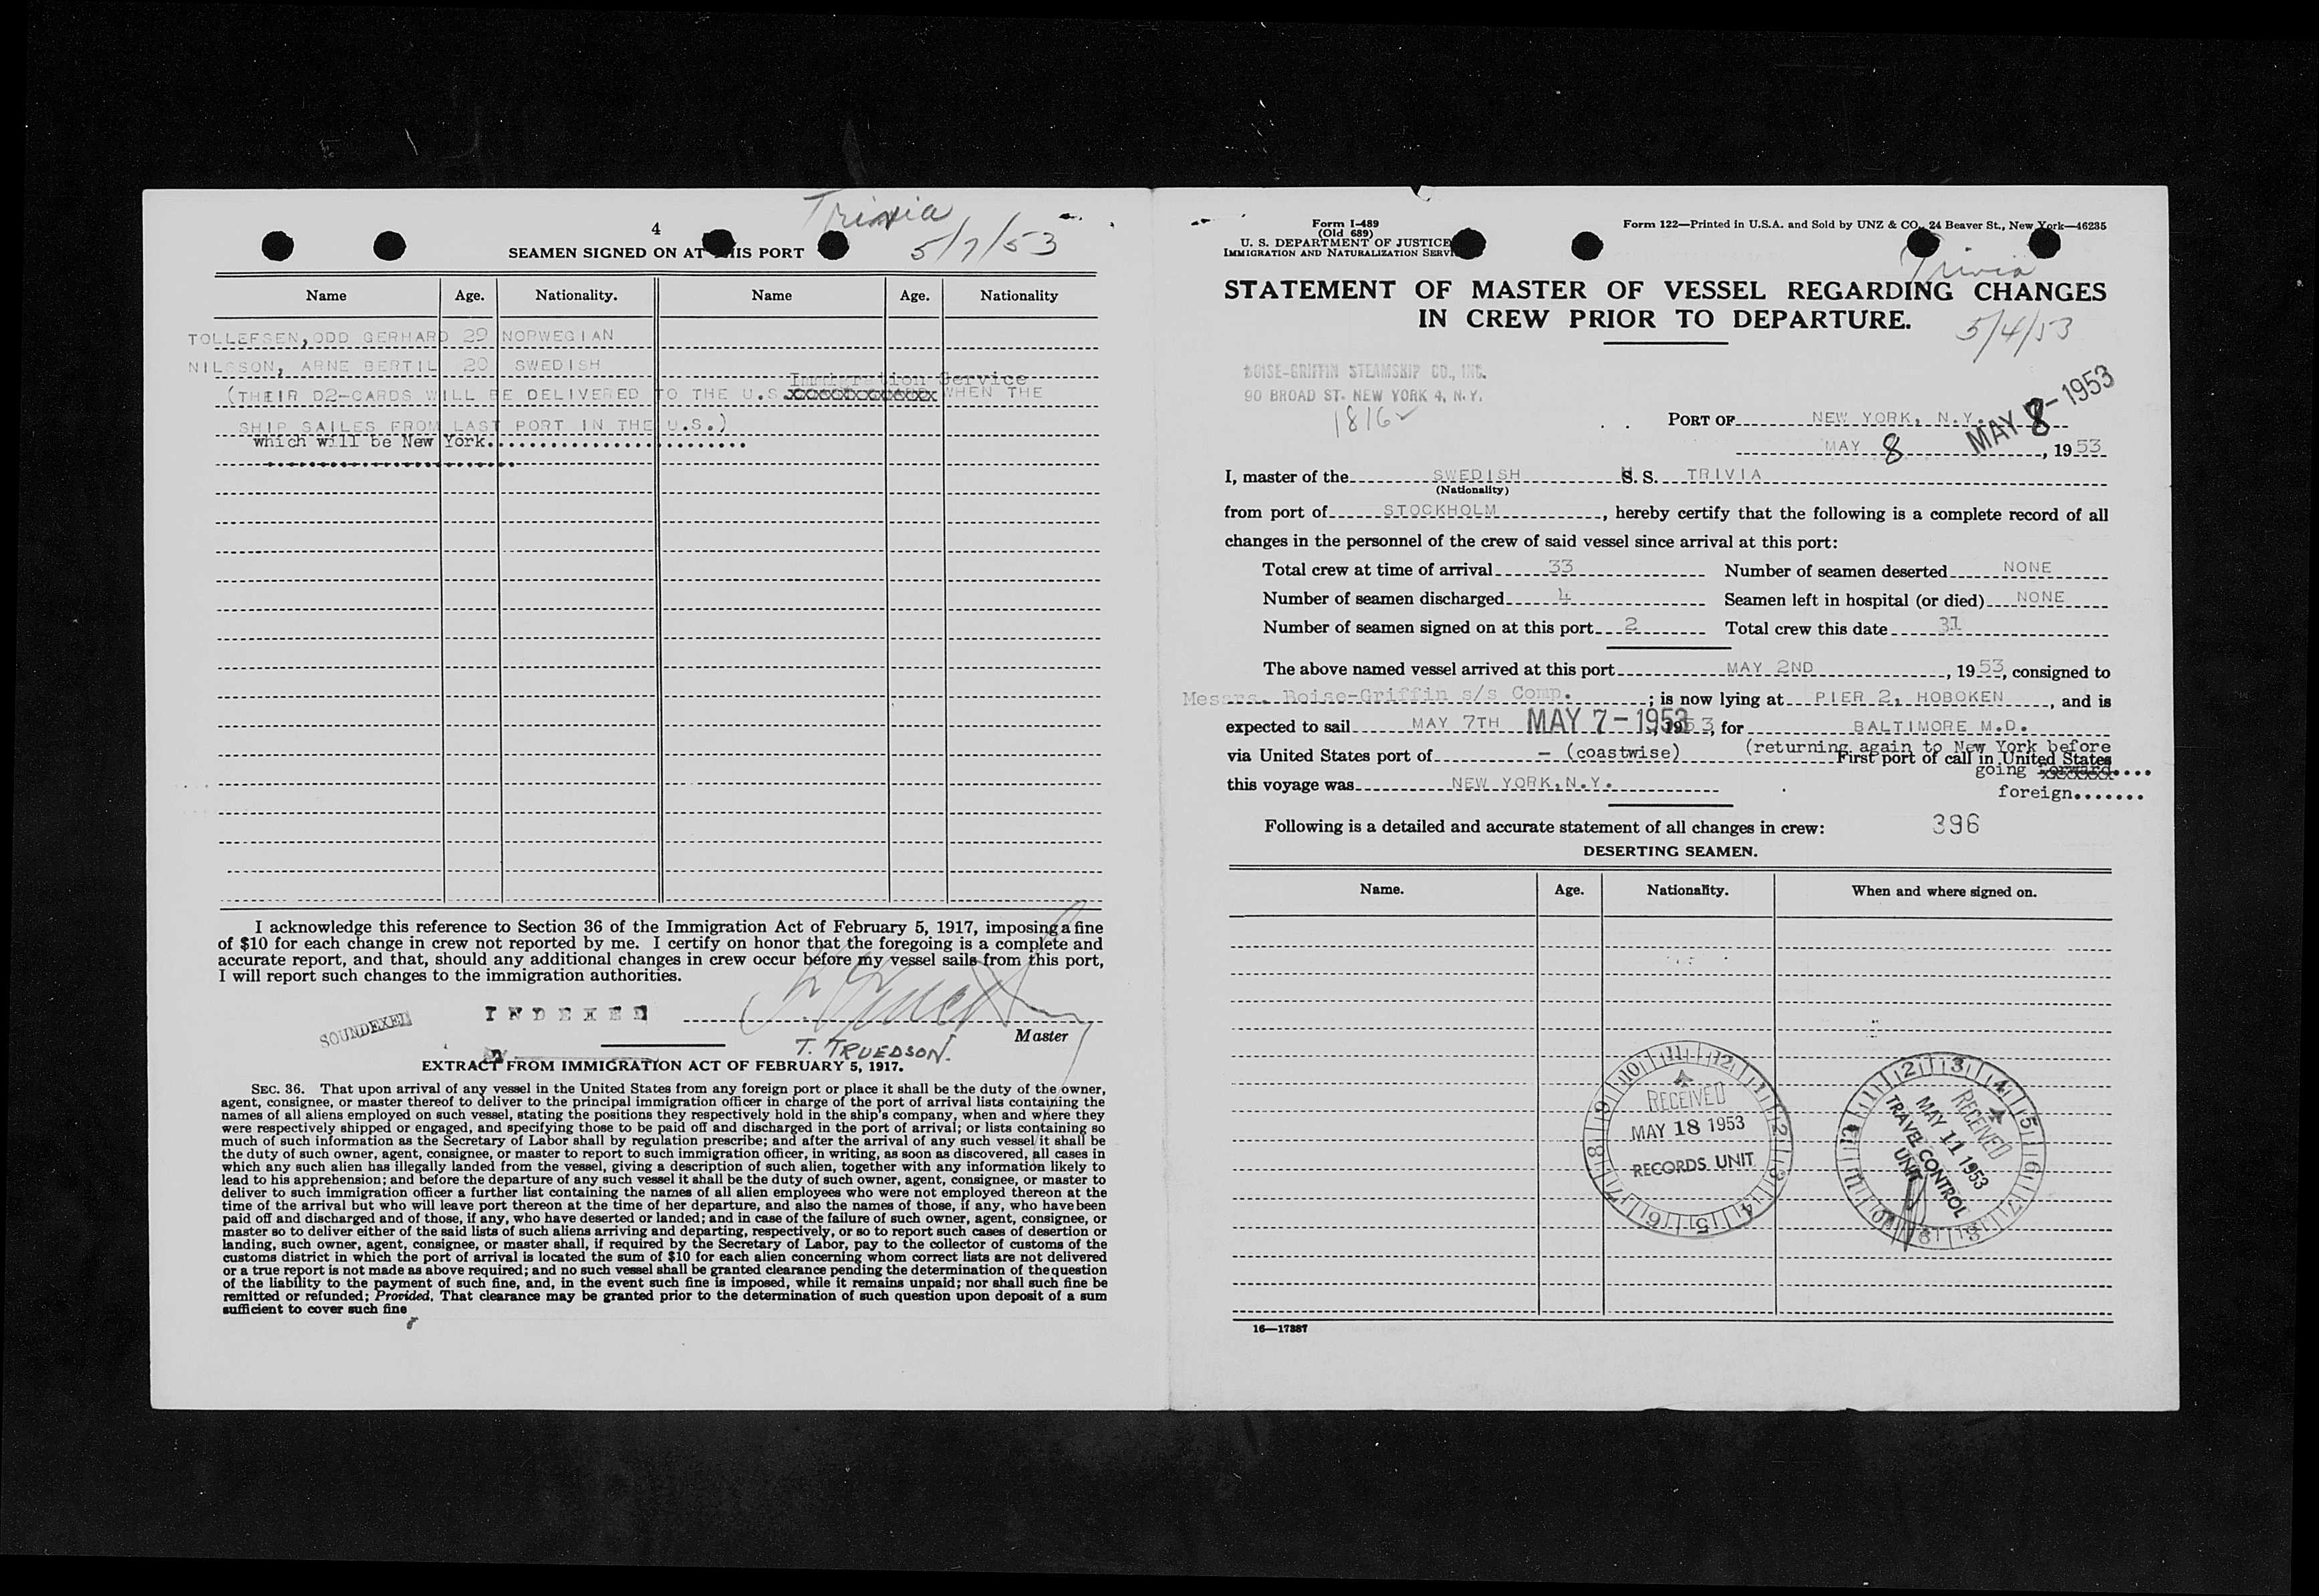 Trivia
5/7/53
4
SEAMEN SIGNED ON AT THIS PORT
Name Age. Nationality. Name Age. Nationality
TOLLEFSEN, ODD GERHARD 29 NORWEGIAN
NILSSON, ARNE BERTIL 20 SWEDISH
Immigration Service
(THEIR D2-CARDS WILL BE DELIVERED TO THE U.S. WHEN THE
SHIP SAILES FROM LAST PORT IN THE U.S.)
which will be New York.
I acknowledge this reference to Section 36 of the Immigration Act of February 5, 1917, imposing a fine
of $10 for each change in crew not reported by me. I certify on honor that the foregoing is a complete and
accurate report, and that, should any additional changes in crew occur before my vessel sails from this port,
I will report such changes to the immigration authorities.
SOUNDEXED
INDEXED
Master
T. TRUEDSON.
EXTRACT FROM IMMIGRATION ACT OF FEBRUARY 5, 1917.
SEC. 36. That upon arrival of any vessel in the United States from any foreign port or place it shall be the duty of the owner,
agent, consignee, or master thereof to deliver to the principal immigration officer in charge of the port of arrival lists containing the
names of all aliens employed on such vessel, stating the positions they respectively hold in the ship's company, when and where they
were respectively shipped or engaged, and specifying those to be paid off and discharged in the port of arrival; or lists containing so
much of such information as the Secretary of Labor shall by regulation prescribe; and after the arrival of any such vessel it shall be
the duty of such owner, agent, consignee, or master to report to such immigration officer, in writing, as soon as discovered, all cases in
which any such alien has illegally landed from the vessel, giving a description of such alien, together with any information likely to
lead to his apprehension; and before the departure of any such vessel it shall be the duty of such owner, agent, consignee, or master to
deliver to such immigration officer a further list containing the names of all alien employees who were not employed thereon at the
time of the arrival but who will leave port thereon at the time of her departure, and also the names of those, if any, who have been
paid off and discharged and of those, if any, who have deserted or landed; and in case of the failure of such owner, agent, consignee, or
master so to deliver either of the said lists of such aliens arriving and departing, respectively, or so to report such cases of desertion or
landing, such owner, agent, consignee, or master shall, if required by the Secretary of Labor, pay to the collector of customs of the
customs district in which the port of arrival is located the sum of $10 for each alien concerning whom correct lists are not delivered
or a true report is not made as above required; and no such vessel shall be granted clearance pending the determination of the question
of the liability to the payment of such fine, and, in the event such fine is imposed, while it remains unpaid; nor shall such fine be
remitted or refunded; Provided, That clearance may be granted prior to the determination of such question upon deposit of a sum
sufficient to cover such fine
Form I-489
(Old 689)
U. S. DEPARTMENT OF JUSTICE
IMMIGRATION AND NATURALIZATION SERVICE
Form 122—Printed in U.S.A. and Sold by UNZ & CO., 24 Beaver St., New York—46235
Trivia
STATEMENT OF MASTER OF VESSEL REGARDING CHANGES
IN CREW PRIOR TO DEPARTURE.
5/4/53
BOISE-GRIFFIN STEAMSHIP CO., INC.
90 BROAD ST. NEW YORK 4, N.Y.
1816
PORT OF NEW YORK, N.Y.
MAY 8-1953
MAY 8, 1953
I, master of the SWEDISH S. S. TRIVIA
(Nationality)
from port of STOCKHOLM, hereby certify that the following is a complete record of all
changes in the personnel of the crew of said vessel since arrival at this port:
Total crew at time of arrival 33 Number of seamen deserted NONE
Number of seamen discharged 4 Seamen left in hospital (or died) NONE
Number of seamen signed on at this port 2 Total crew this date 31
The above named vessel arrived at this port MAY 2ND, 1953, consigned to
Messrs. Boise-Griffin s/s Comp.; is now lying at PIER 2, HOBOKEN, and is
expected to sail MAY 7TH MAY 7-1953, 1953, for BALTIMORE M.D.
via United States port of - (coastwise) (returning again to New York before
First port of call in United States
going
this voyage was NEW YORK, N.Y.
foreign.......
Following is a detailed and accurate statement of all changes in crew: 396
DESERTING SEAMEN.
Name. Age. Nationality. When and where signed on.
RECEIVED
MAY 18 1953
RECORDS UNIT
RECEIVED
MAY 11 1953
TRAVEL CONTROL
UNIT
16—17887